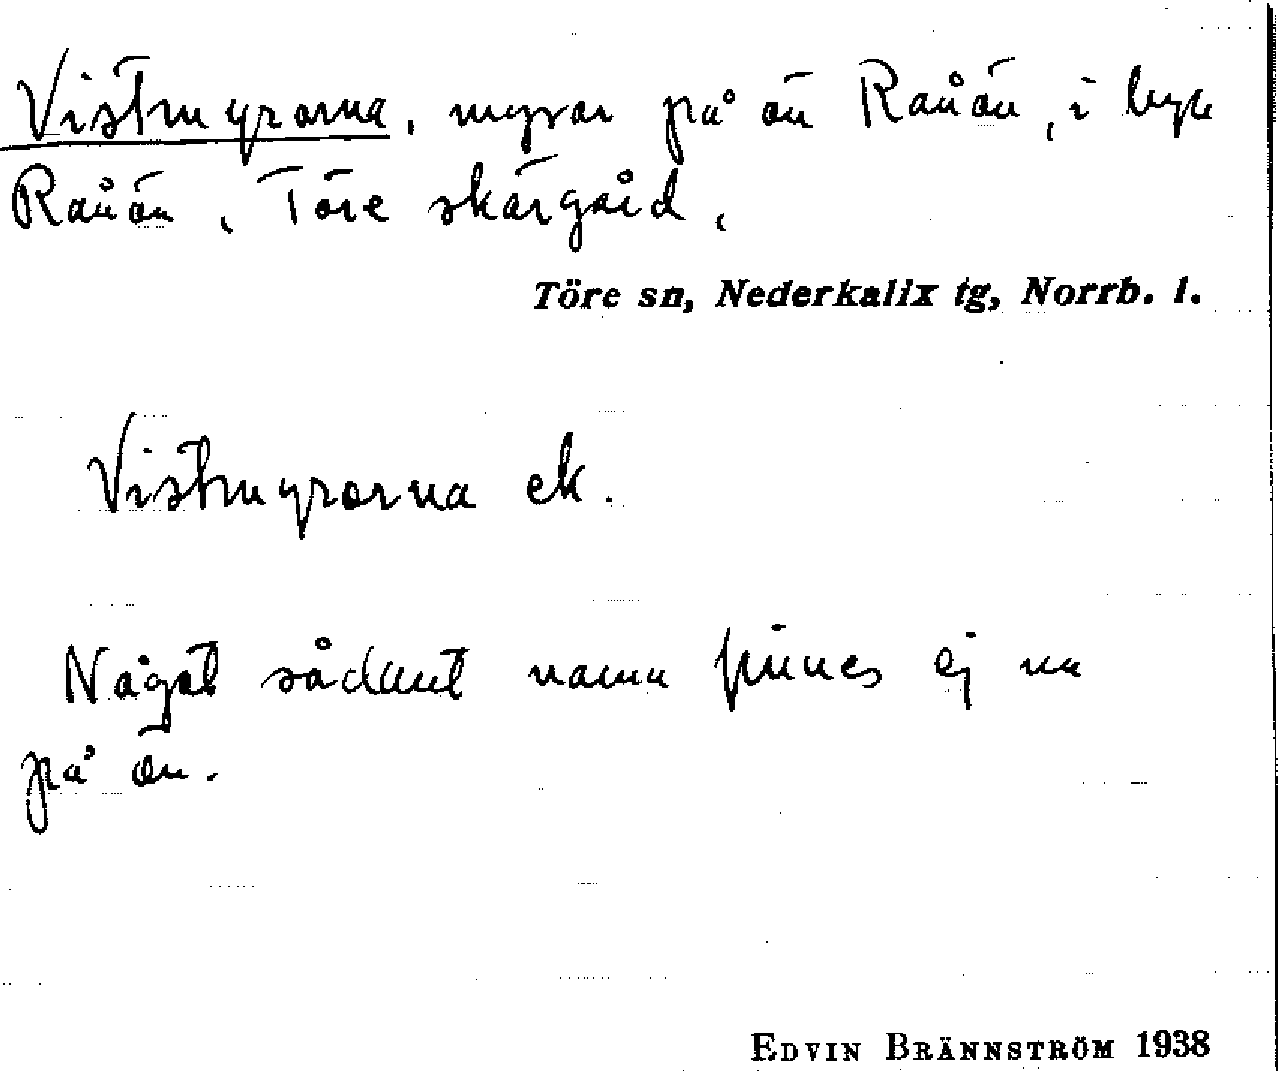 Vistmyrorna, myrar på ön Rånön, i byn
Rånön, Töre skärgård,
Töre sn, Nederkalix tg, Norrb. l.
Vistmyrorna ek.
Något sådant namn finnes ej nu
på ön.
EDVIN BRÄNNSTRÖM 1938